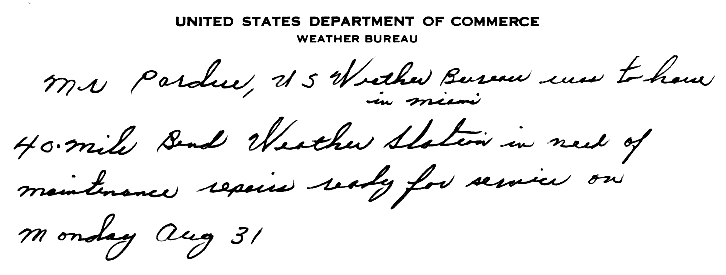 UNITED STATES DEPARTMENT OF COMMERCE
WEATHER BUREAU
Mr Pardue, US Weather Bureau was to have
in miami
40-mile Bend Weather Station in need of
maintenance repairs ready for service on
Monday Aug 31